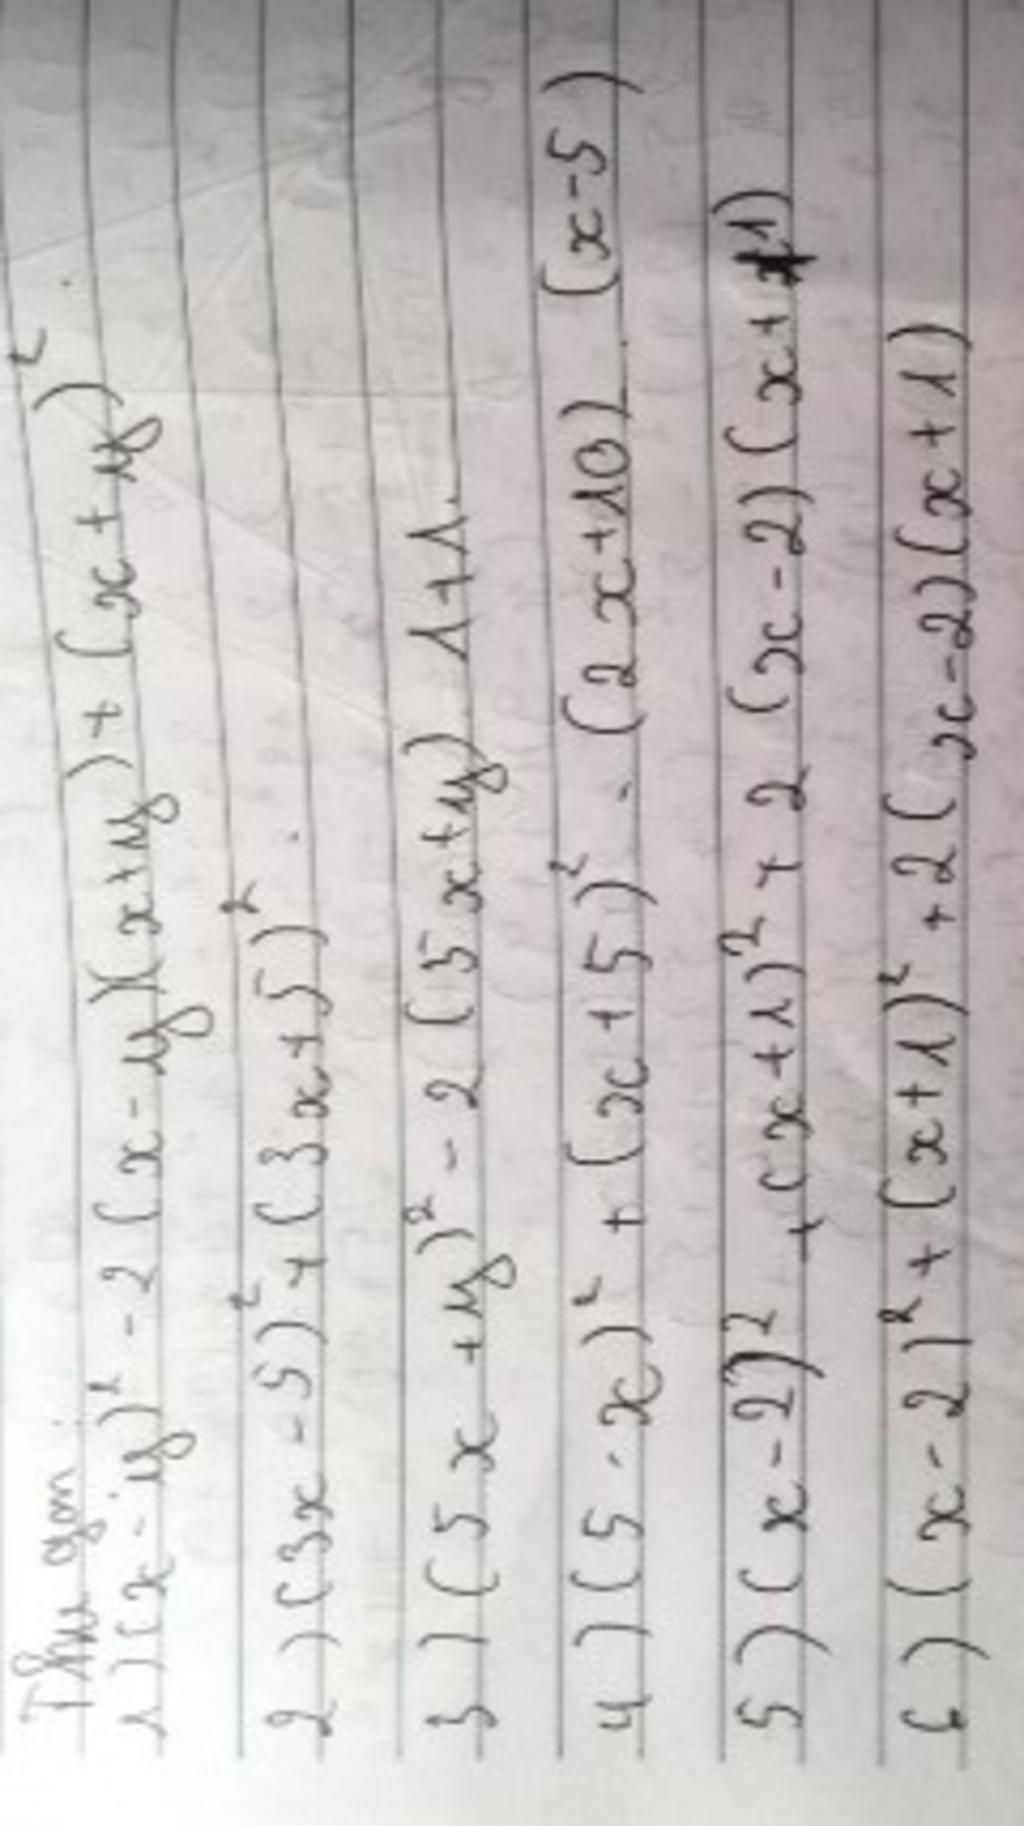 Thu gọn
1) (x-y)² - 2(x-y)(x+y) + (x+y)².
2) (3x-5)² + (3x+5)².
3) (5x+y)² - 2(5x+y) 1+1.
4) (5-x)² + (x+5)² - (2x+10).(x-5)
5) (x-2)² + (x+1)² + 2(x-2)(x+1)
6) (x-2)² + (x+1)² + 2(x-2)(x+1)